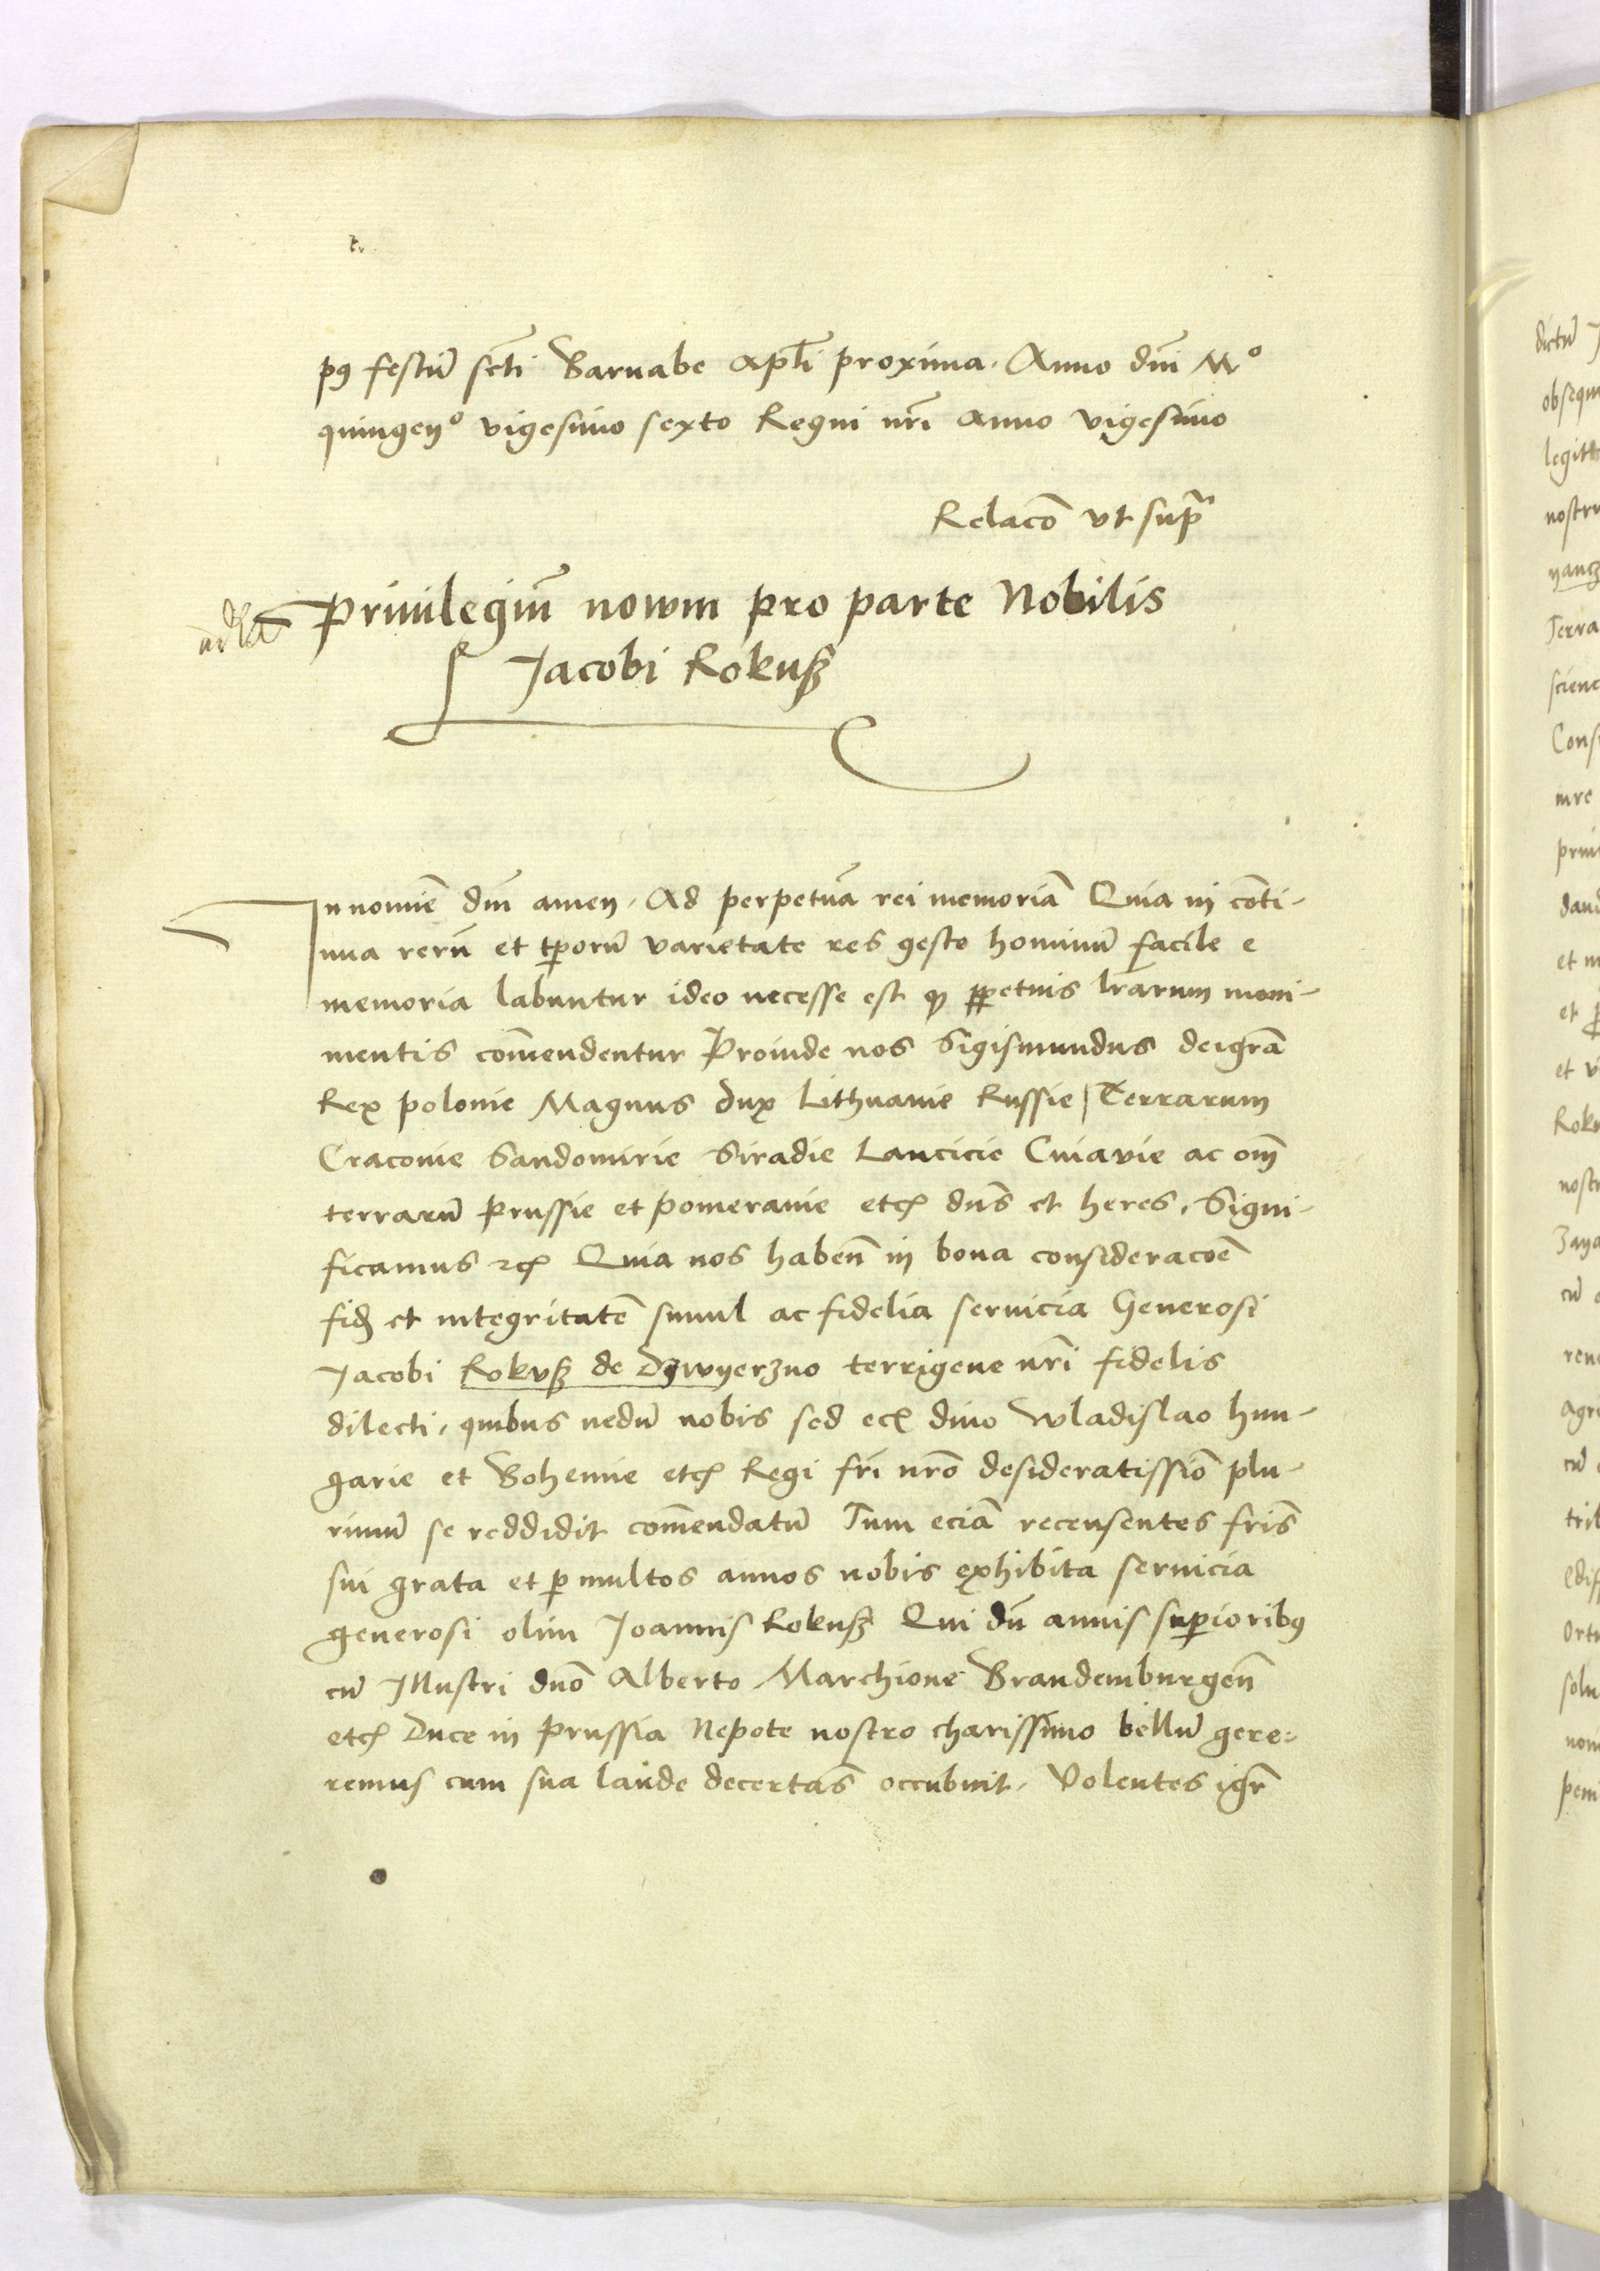 p9 festũ scti Barnabe apli proxima. Anno dni Mº
quingenº vigesimo sexto Regni nri anno vigesimo
Relacõ vt supra
Priuilegiũ nowm pro parte Nobilis
Jacobi Rokuß
In nomiē dni amen. Ad perpetuã rei memoriã Quia in cõti-
nua rerũ et tporũ varietate res geste hominũ facile e
memoria labuntur ideo necesse est ꝙ ꝑpetuis lrarum moni-
mentis cõmendentur Proinde nos Sigismundus dei grã
Rex polonie Magnus dux Lithuanie Russie | Terrarum
Cracouie Sandomirie Siradie Lancicie Cuiavie ac om̃
terrarũ Prussie et pomeranie etc̃ dns et heres. Signi-
ficamus ꝛc̃ Quia nos haben̄ in bona consideracõe
fid et integritatẽ simul ac fidelia seruicia Generosi
Jacobi Rokvß de Dzwyerzno terrigene nri fidelis
dilecti, quibus nedũ nobis sed ec̃ diuo Wladislao hun-
garie et Bohemie etc̃ Regi fri nro desideratissiõ plu-
rimũ se reddidit cõmendatũ Tum eciã recensentes fris
sui grata et ꝑ multos annos nobis exhibita seruicia
generosi olim Joannis Rokuß Qui dũ annis suꝑiorib9
cũ Illustri dno Alberto Marchione Brandemburgen̄
etc̃ Duce in Prussia Nepote nostro charissimo bellũ gere-
remus cum sua laude decertãs occubuit. Volentes igr̃